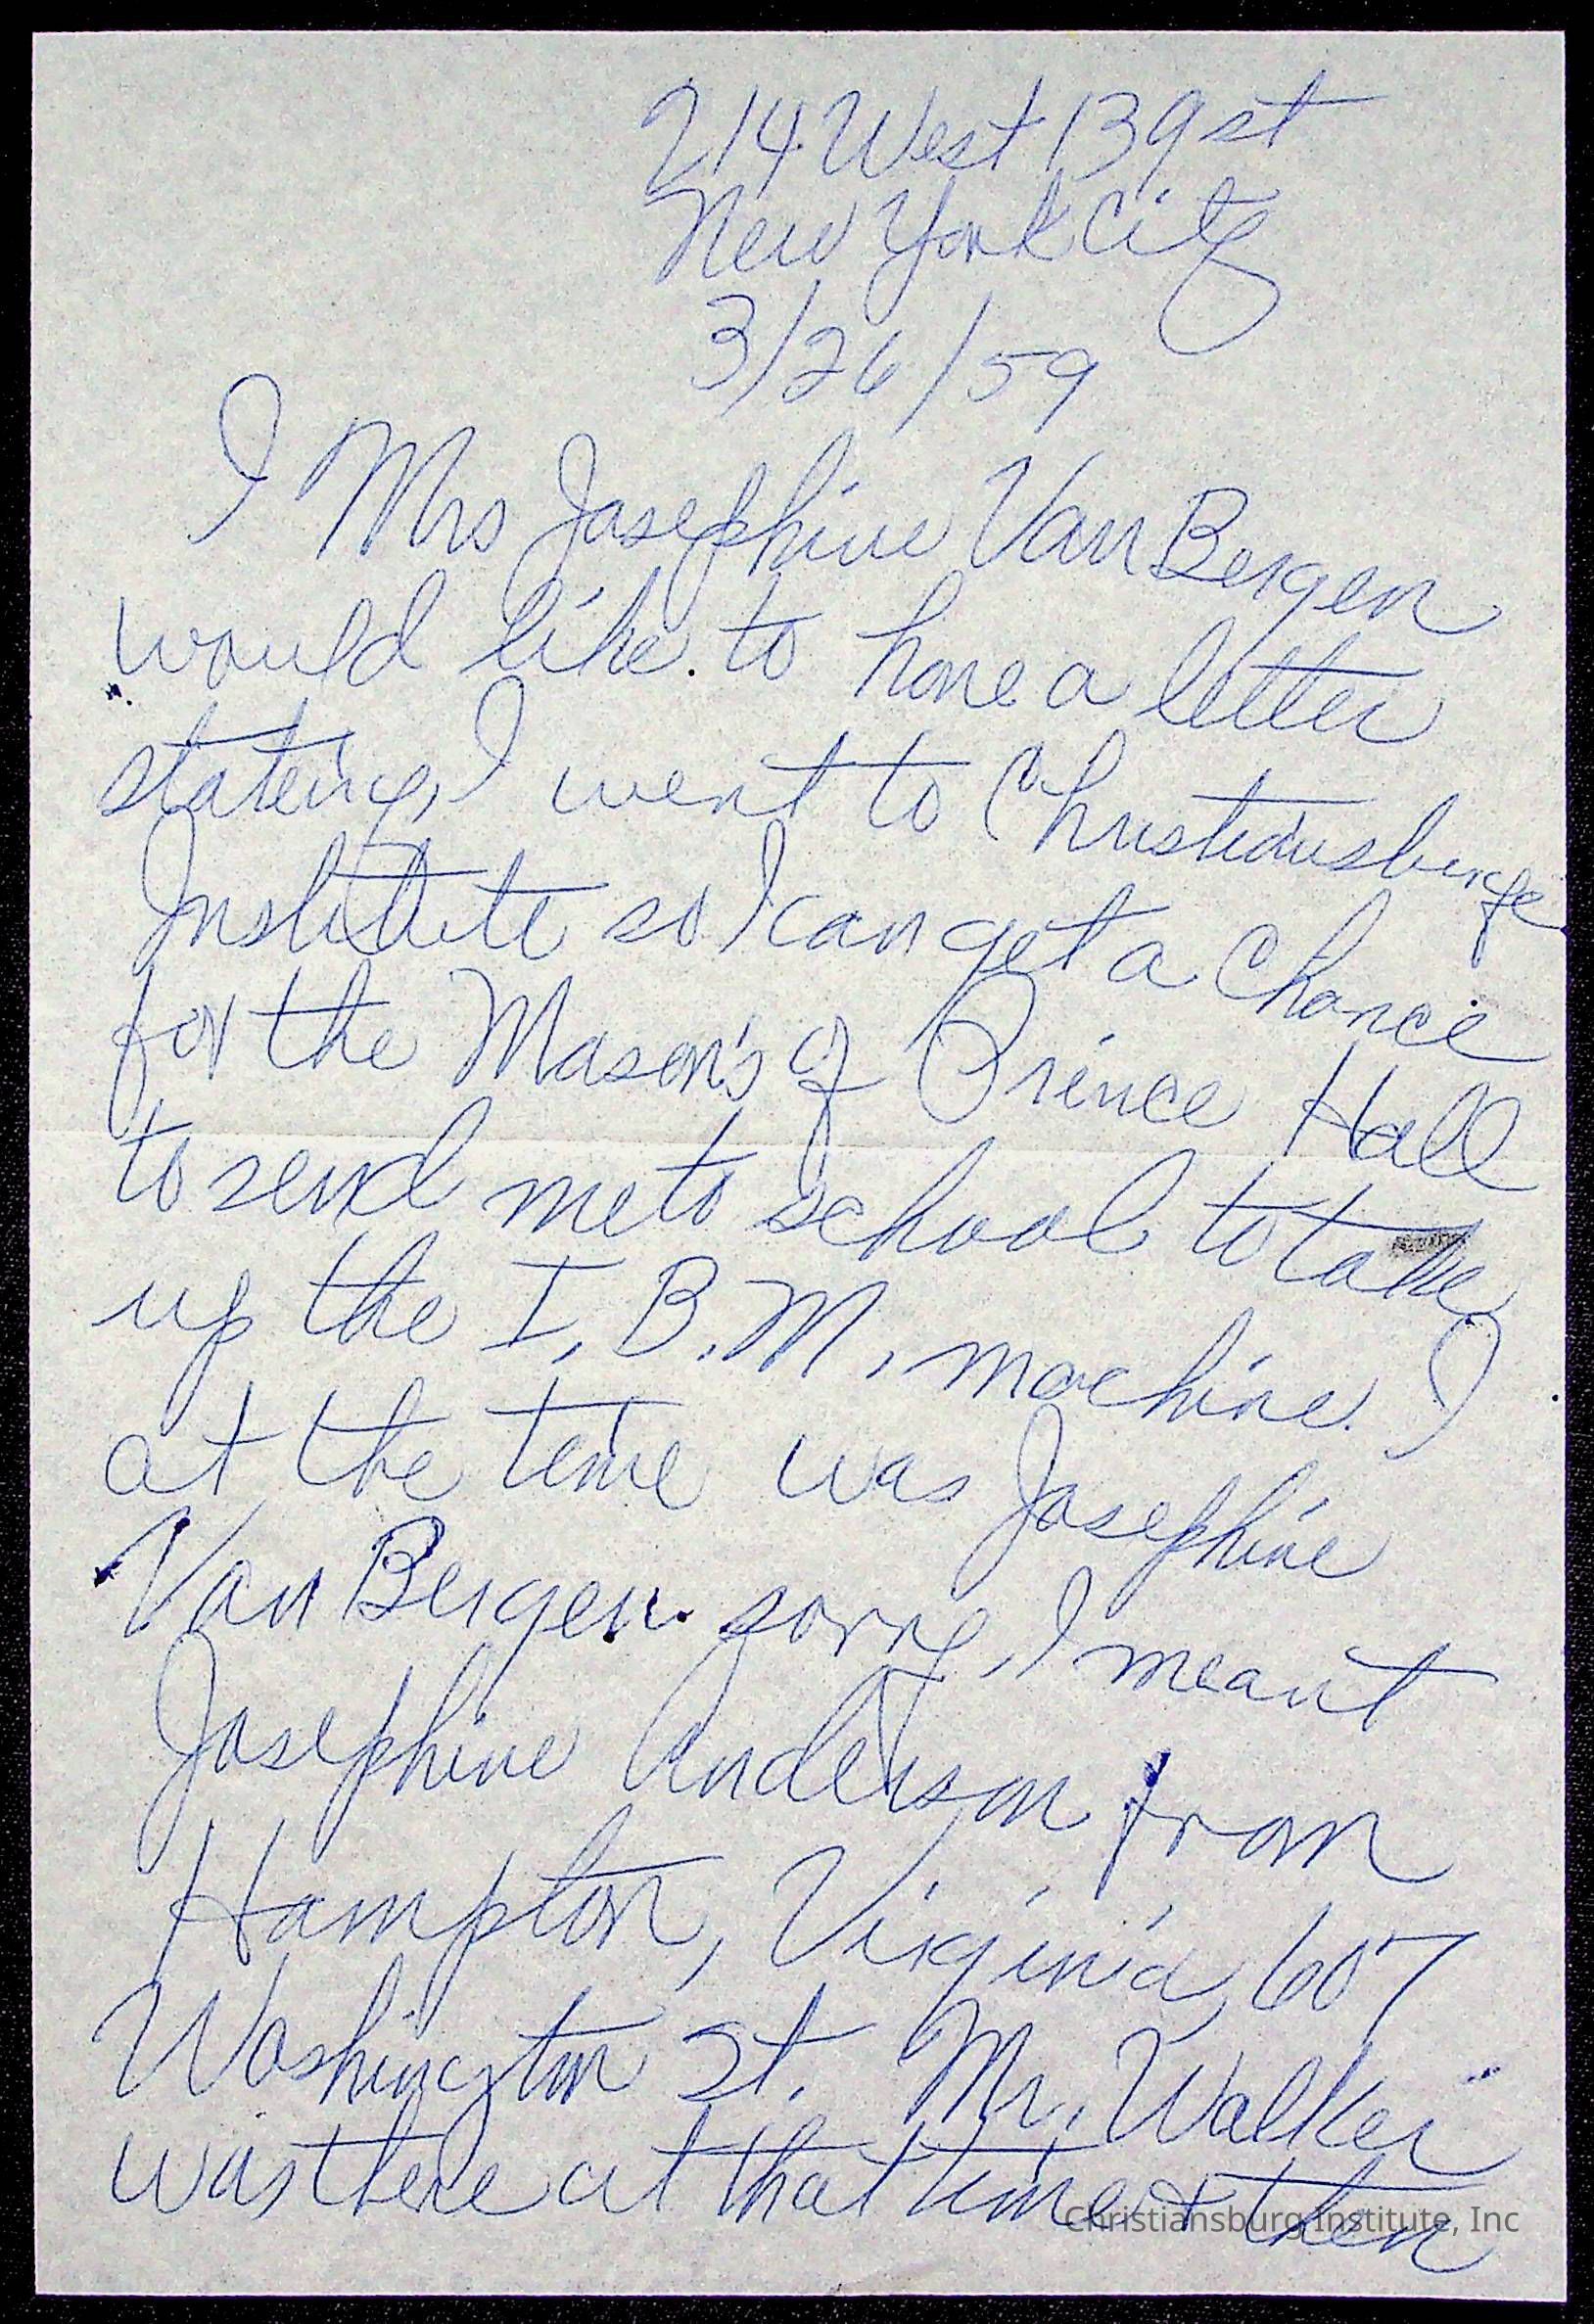 214 West 139 st
New York City
3/26/59
I Mrs Josephine Van Bergen
would like to have a letter
stateing, I went to Christiansberge
Institute so I can get a chance
for the Mason's of Prince Hall
to send me to school to take
up the I.B.M. machine. I
at the time was Josephine
Van Bergen. sorry, I meant
Josephine Anderson from
Hampton, Virginia, 607
Washington St. Mr. Walker
was there at that time & then
Christiansburg Institute, Inc